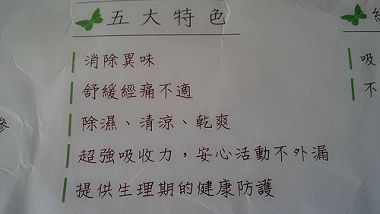 五大特色
消除異味
舒緩經痛不適
除濕、清涼、乾爽
超強吸收力，安心活動不外漏
提供生理期的健康防護
吸
不